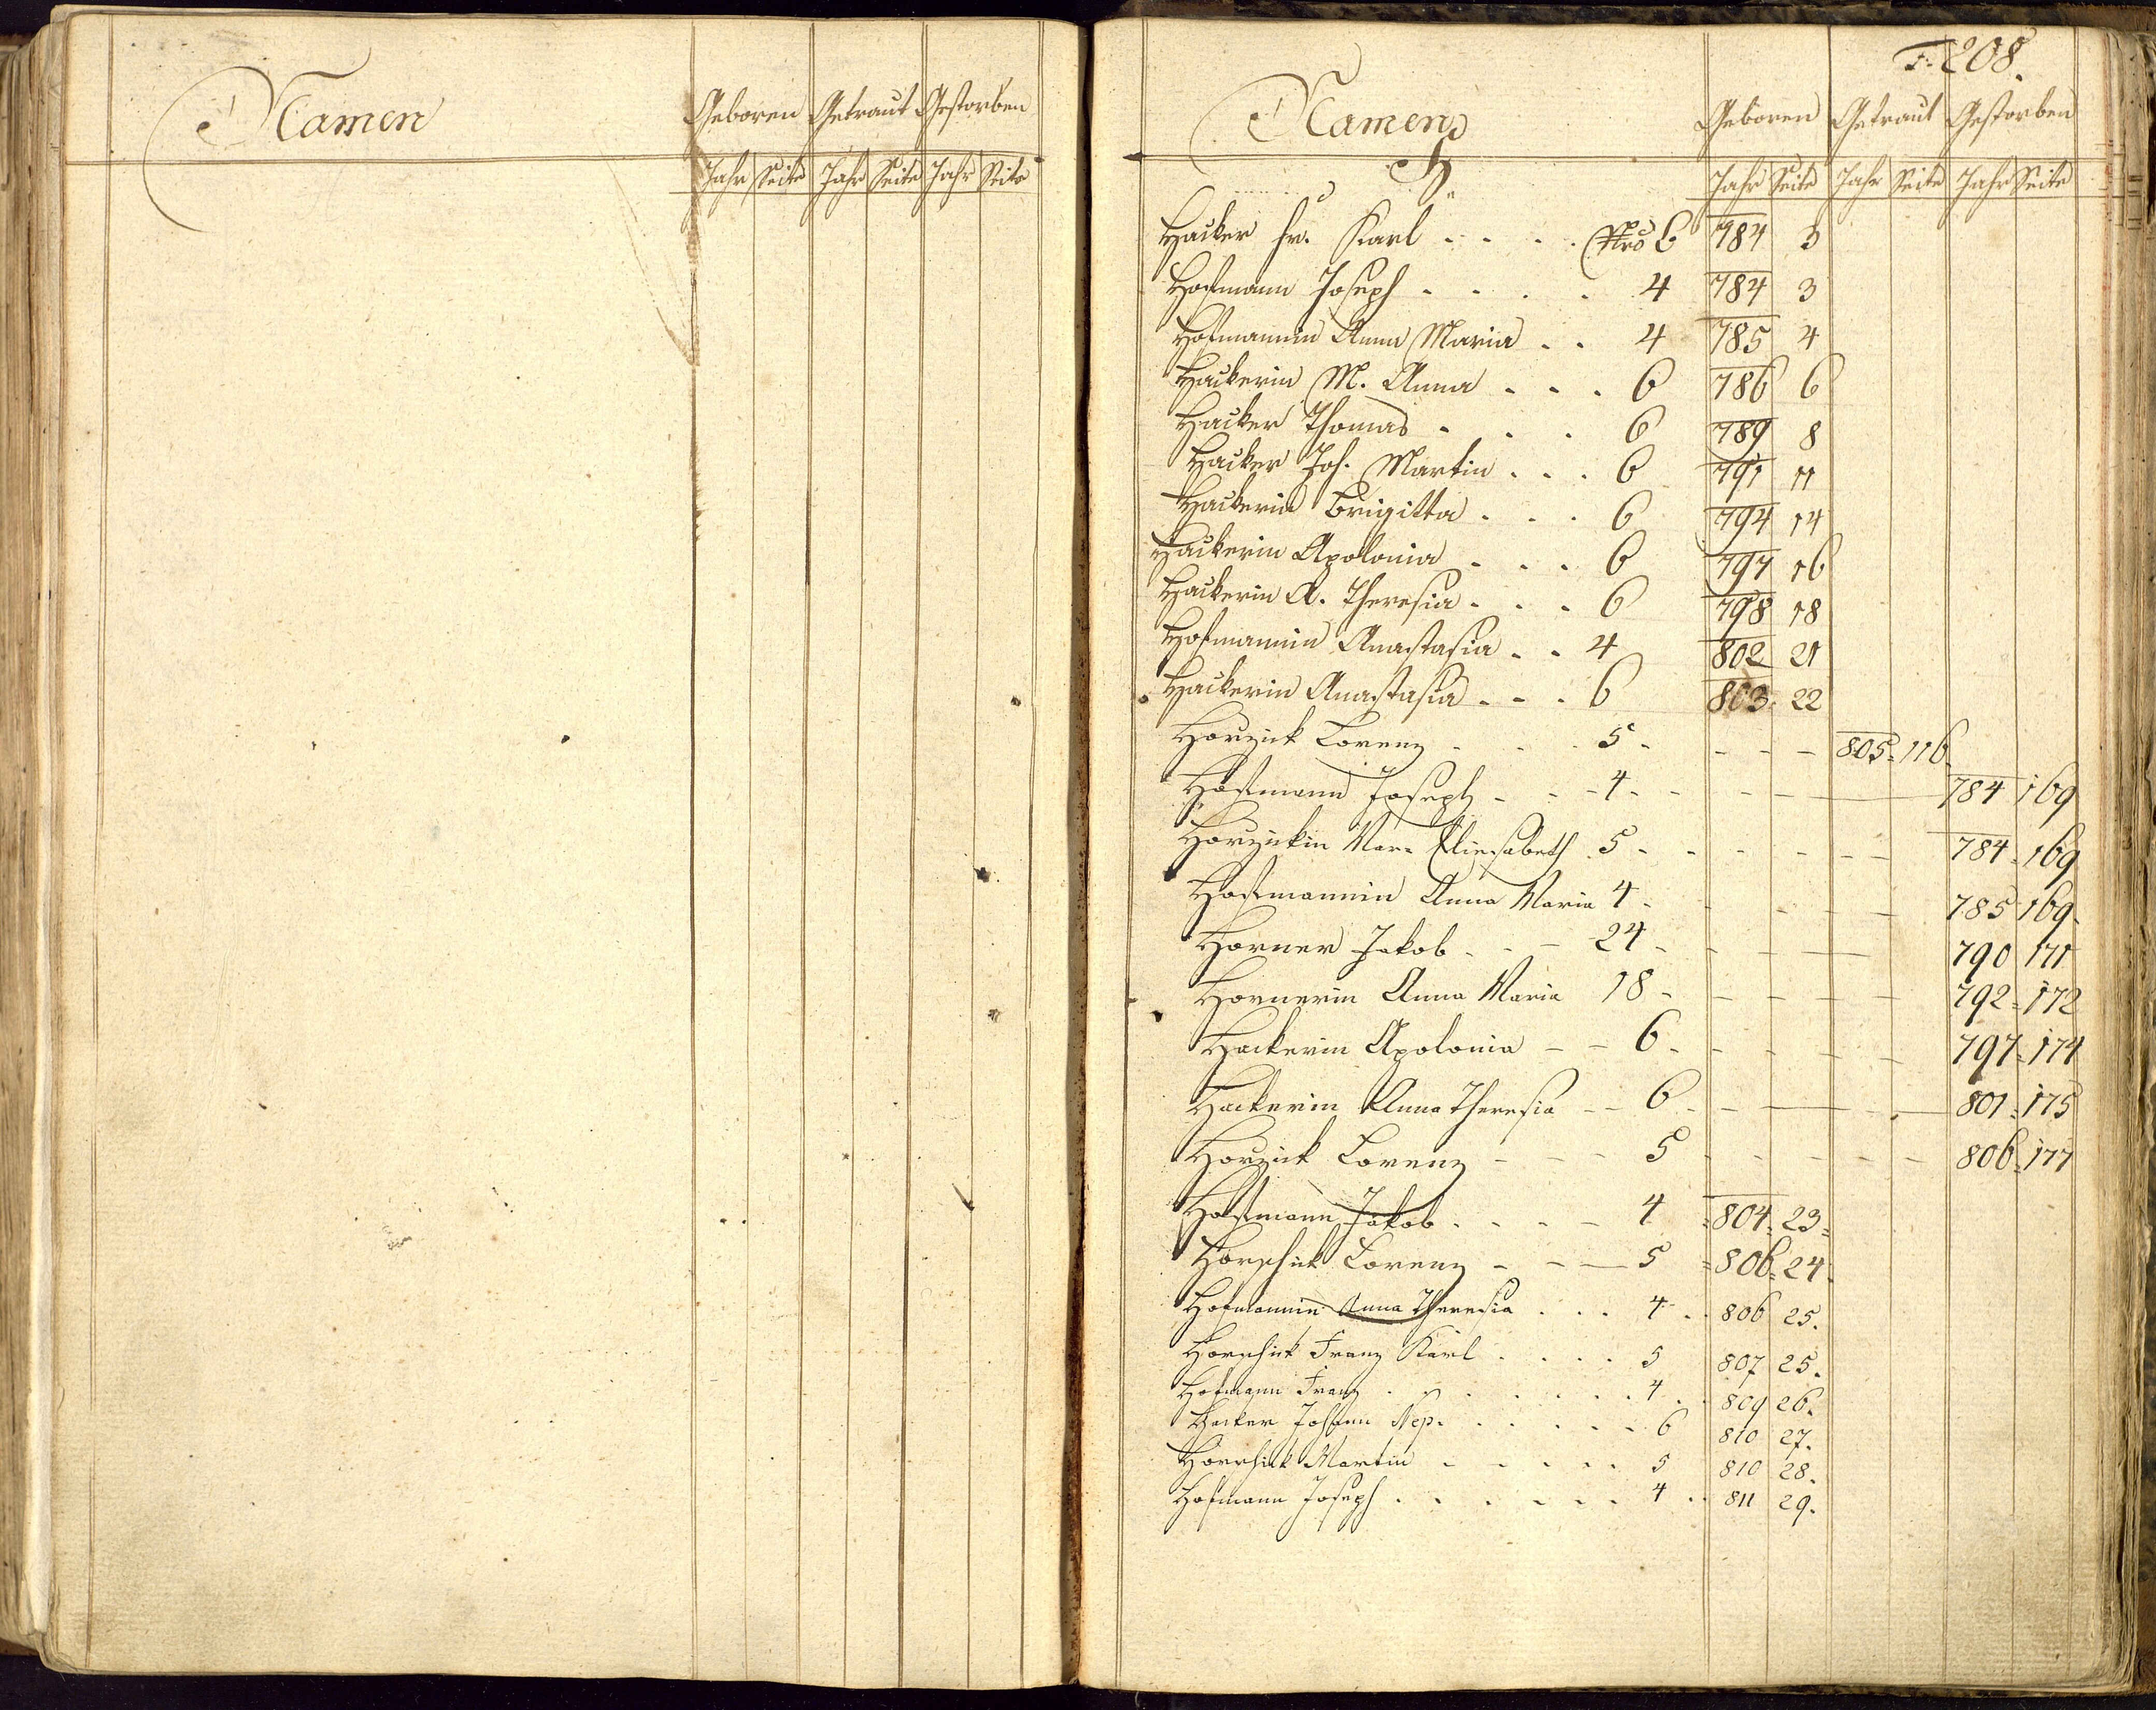 Namen Geboren Getraut Gestorben
Jahr Seite Jahr Seite Jahr Seite
F. 208.
Namen Geboren Getraut Gestorben
H
Jahr Seite Jahr Seite Jahr Seite
Hacker Fr. Karl . . . . Nro 6 784 3
Hofmann Joseph . . . . 4 784 3
Hofmannin Anna Maria . . 4 785 4
Hackerin M. Anna . . . 6 786 6
Hacker Thomas . . . 6 789 8
Hacker Joh. Martin . . . 6 791 11
Hackerin Brigitta . . . 6 794 14
Hackerin Apolonia . . . 6 797 16
Hackerin A. Theresia . . . 6 798 18
Hofmannin Anastasia . . 4 802 21
Hackerin Anastasia - - . 6 803. 22
Horzick Lorenz . . . 5 - - - - 805. 116.
Hofmann Joseph - - - 4 - - - - 784 169
Horzickin Mar. Eliesabeth . 5 - - - - - - 784 - 169
Hofmannin Anna Maria 4 - - - - - 785 169.
Horner Jakob - - - 24 - - - - 790 171
Hornerin Anna Maria 18 - - - - - 792 - 172
Hackerin Apolonia - - 6 - - - - - 797 - 174
Hackerin Anna Theresia - - 6 - - - - - 801. 175
Horzick Lorenz - - - 5 - - - - - 806. 177
Hofmann Jakob . . . - 4 804. 23
Horschick Lorenz - - - 5 806. 24.
Hofmannin Anna Theresia . . . 4 . . 806 25.
Horschick Franz Karl . . . . 5 807 25.
Hofmann Franz . . . . . . . 4 . . 809 26.
Hacker Johann Nep. . . . . . 6 810 27.
Horschick Martin - . . . . 5 810 28.
Hofmann Joseph . . . . . . . 4 . . 811 29.